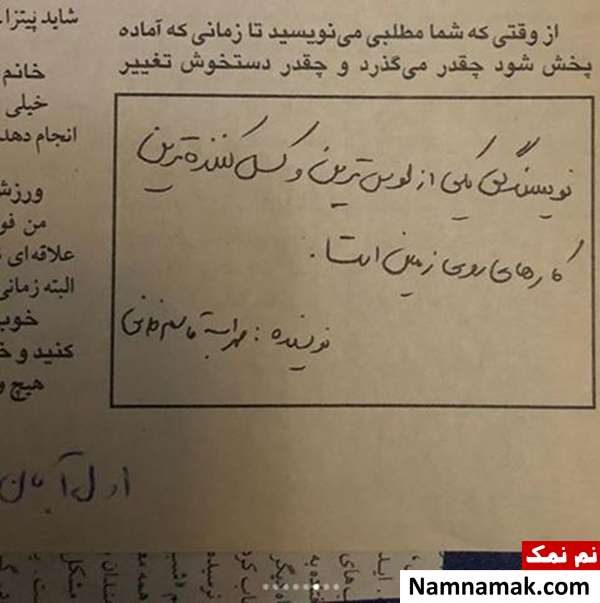 از وقتی که شما مطلبی می‌نویسید تا زمانی که آماده
پخش شود چقدر می‌گذرد و چقدر دستخوش تغییر
نویسندگی یکی از لوس ترین و کسل کننده ترین
کارهای روی زمین است.
نویسنده: مهراب قاسم خانی
شاید پیتزا
خانم
خیلی
انجام دهد
ورزش
من فو
علاقه‌ای
البته زمانی
خوب
کنید و خ
هیچ و
اول آبان
نم نمک
Namnamak.com